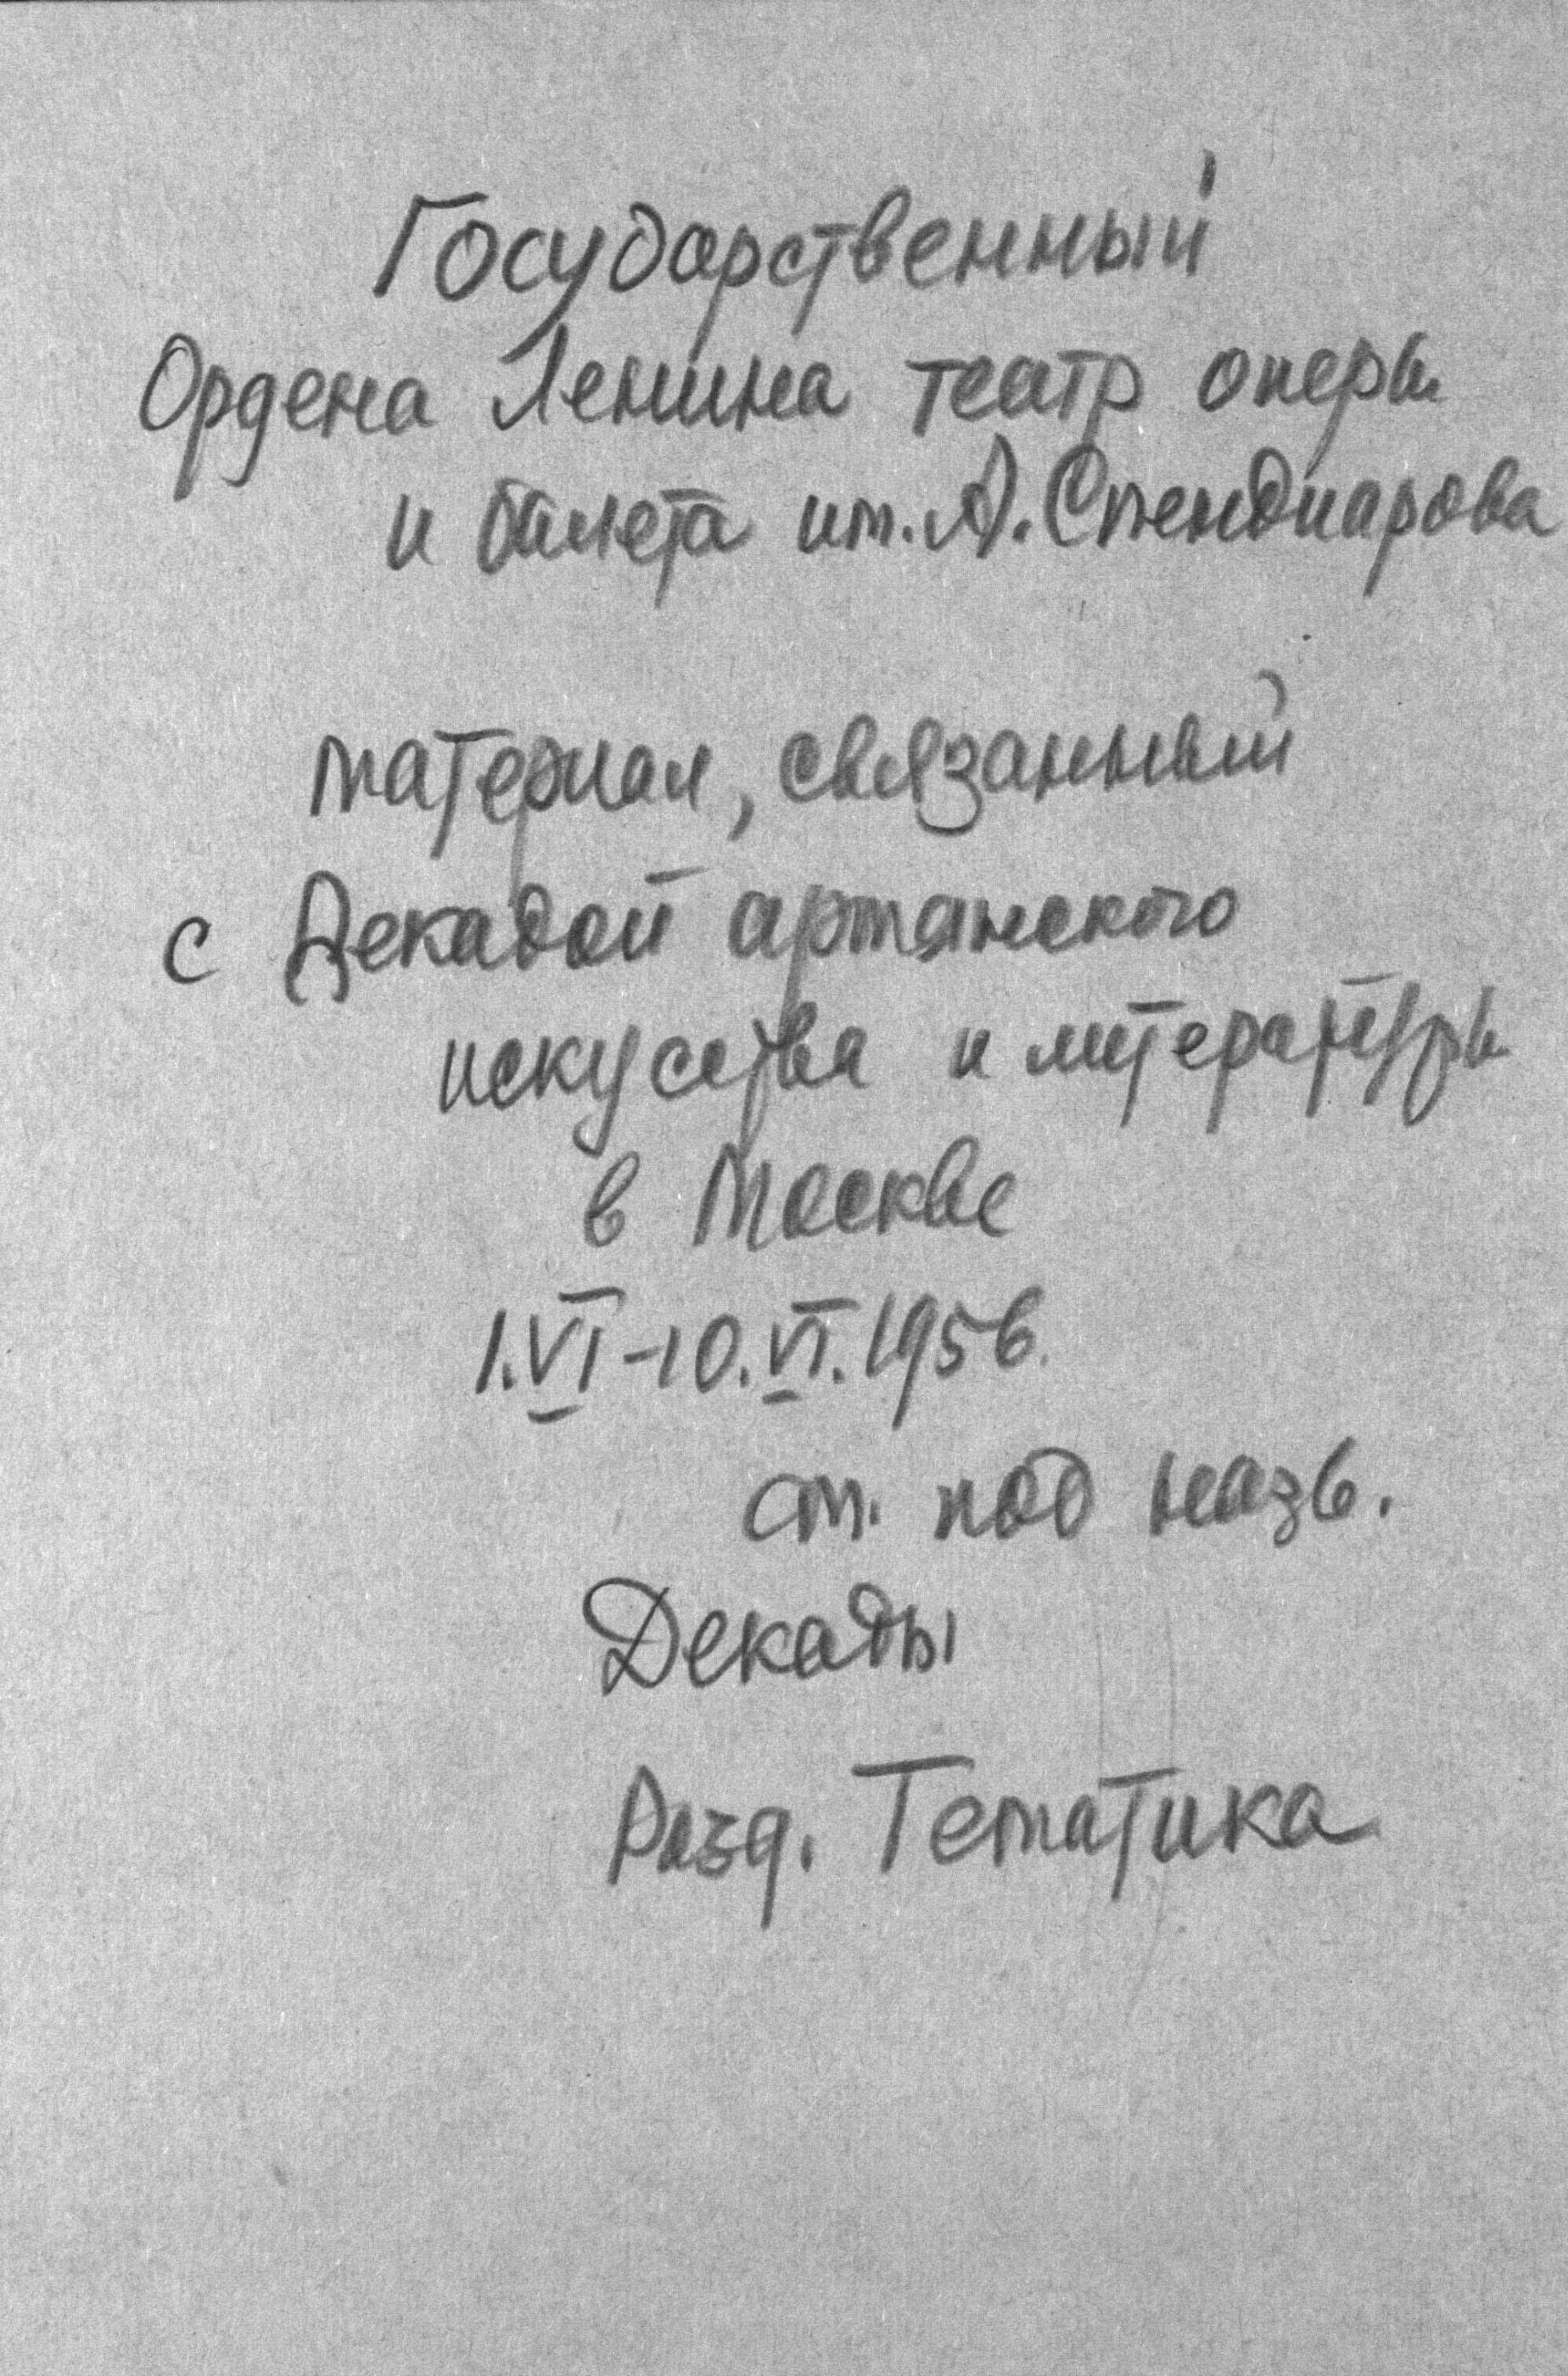 Государственный
Ордена Ленина театр оперы
и балета им. А. Спендиарова
материал, связанный
с Декадой армянского
искусства и литературы
в Москве
1.VI-10.VI.1956
см. под назв.
Декады
Разд. Тематика